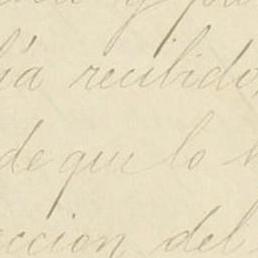 y
ía recibido
de que lo
ccion del